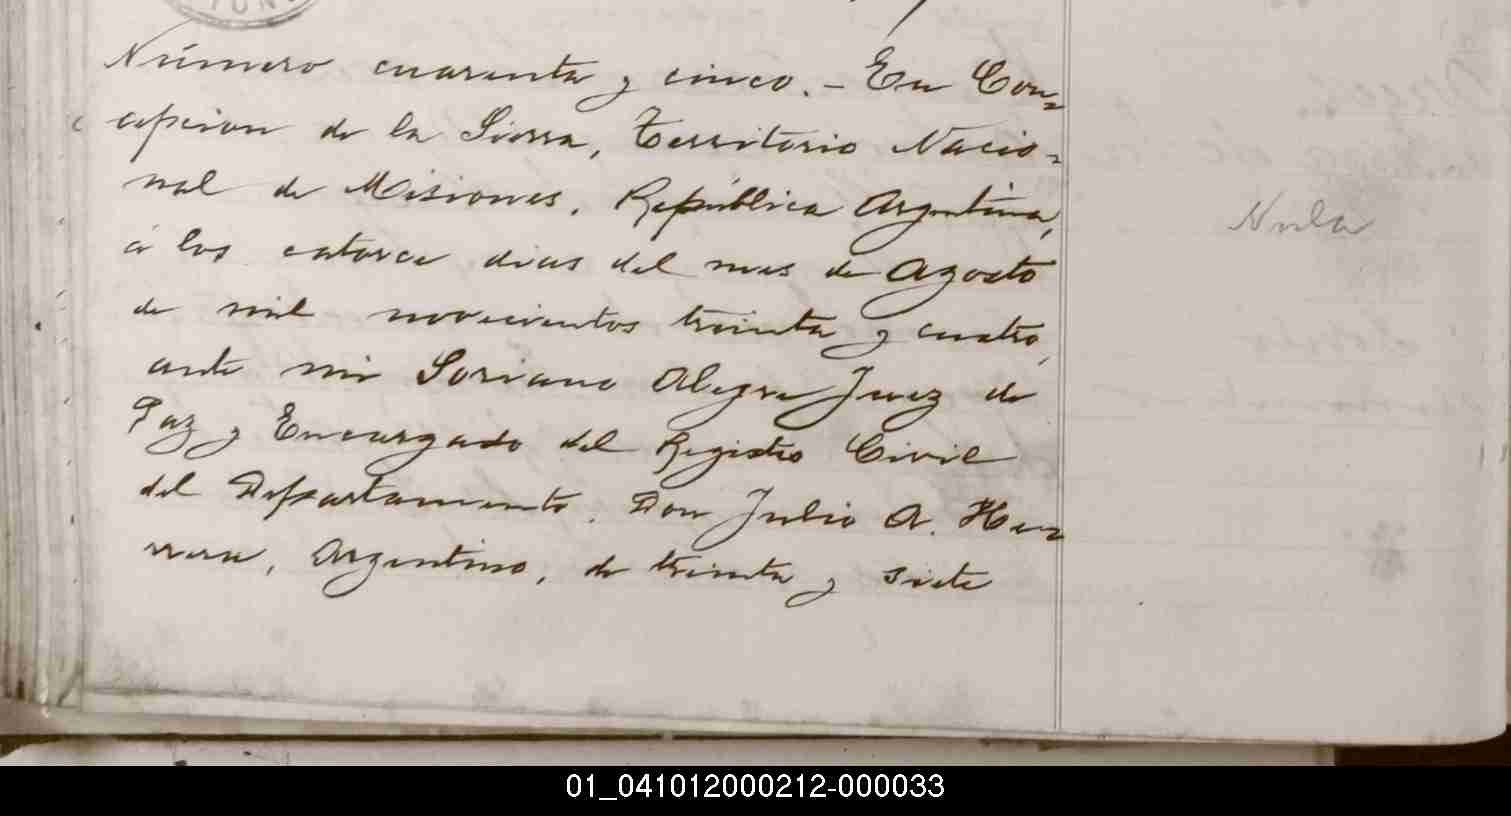 Número cuarenta y cinco. - En Con=
cepcion de la Sierra, Territorio Nacio=
nal de Misiones, República Argentina,
á los catorce dias del mes de Agosto
de mil novecientos treinta y cuatro,
ante mi Soriano Alegre Juez de
Paz y Encargado del Registro Civil
del Departamento. Don Julio A. Her=
rera, Argentino, de treinta y siete
Nula
01_041012000212-000033